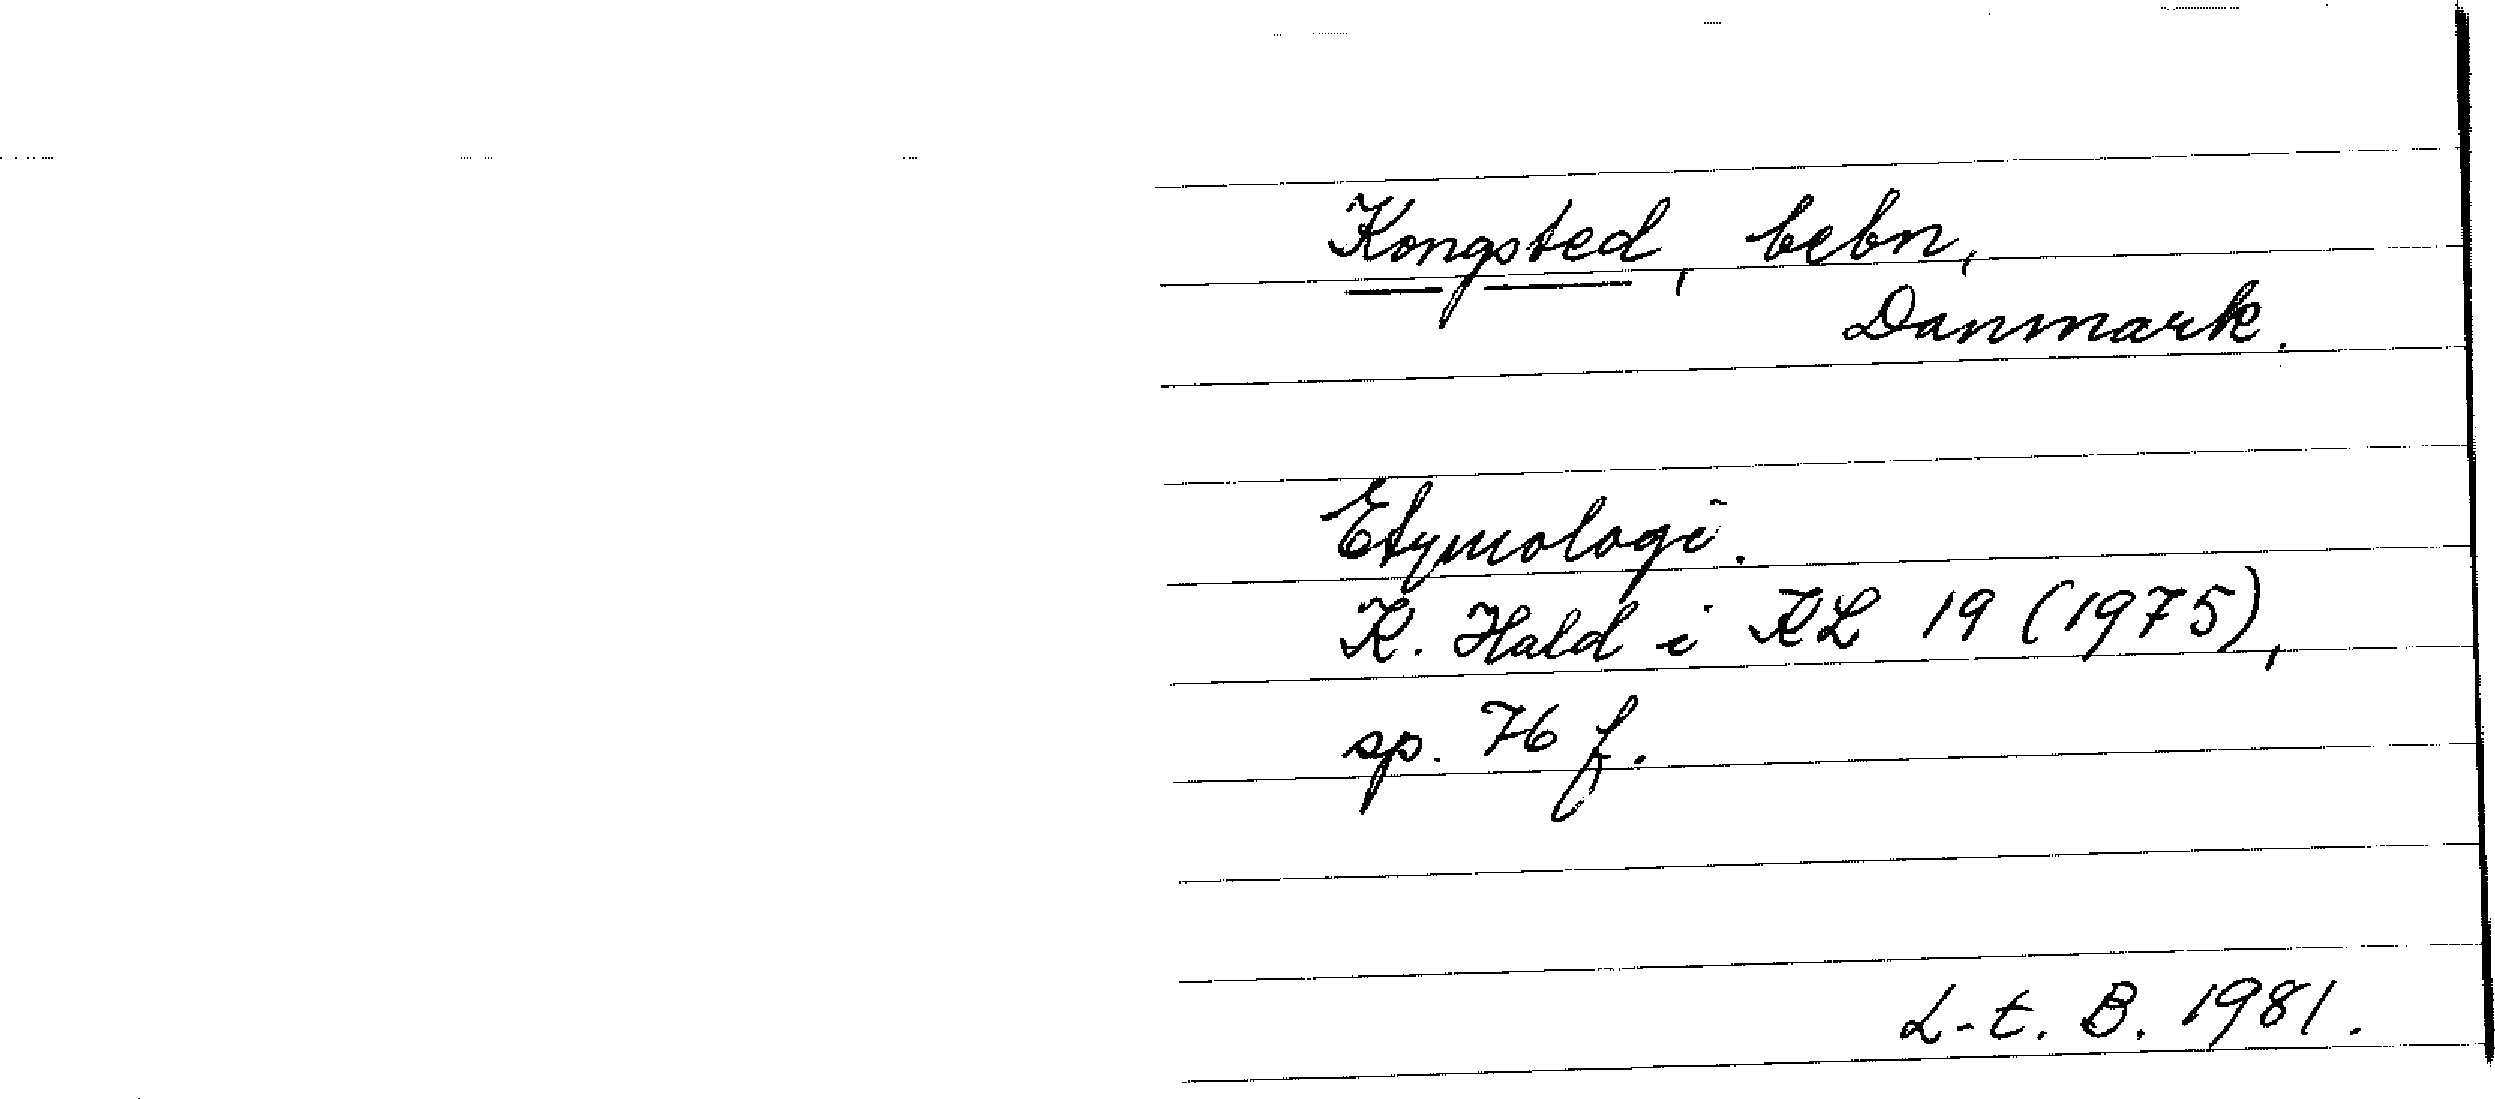 Kongsted, bebn,
Danmark.
Etymologi.
K. Hald i KL 19 (1975),
sp. 76 f.
L-t. B. 1981.